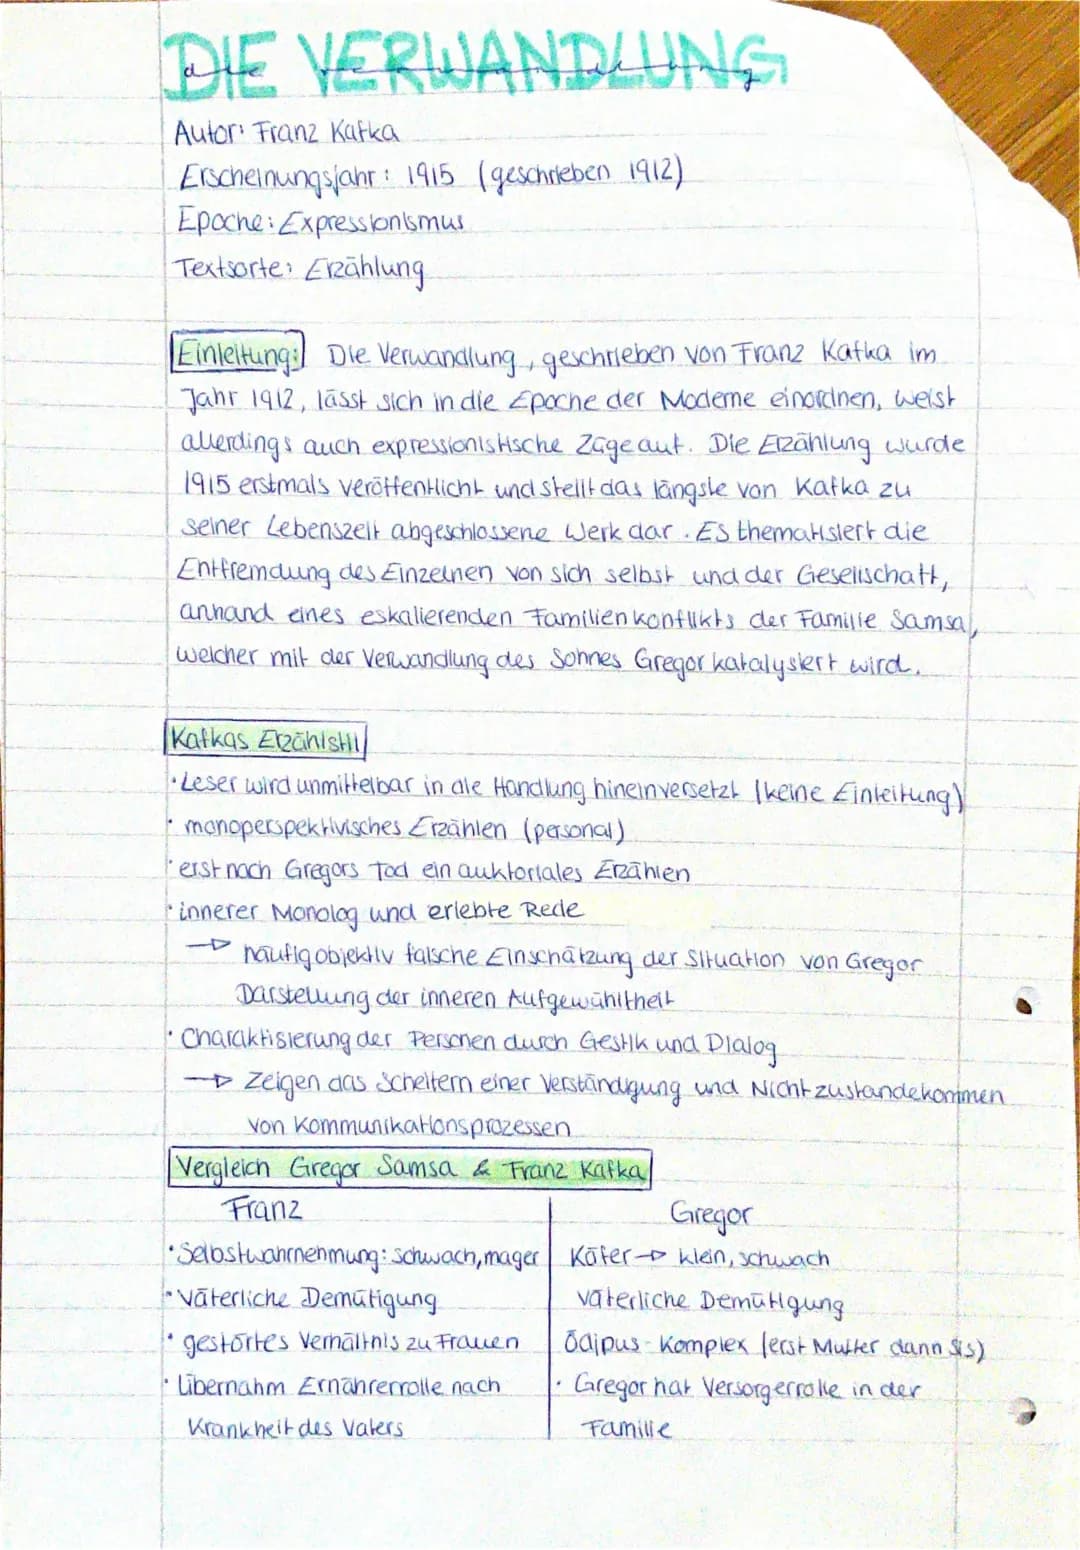 DIE VERWANDLUNG
die Verwandlung
Autor: Franz Kafka
Erscheinungsjahr: 1915 (geschrieben 1912)
Epoche: Expressionismus
Textsorte: Erzählung
Einleitung: Die Verwandlung, geschrieben von Franz Kafka im
Jahr 1912, lässt sich in die Epoche der Moderne einordnen, weist
allerdings auch expressionistische Züge auf. Die Erzählung wurde
1915 erstmals veröffentlicht und stellt das längste von Kafka zu
seiner Lebenszeit abgeschlossene Werk dar. Es thematisiert die
Entfremdung des Einzelnen von sich selbst und der Gesellschaft,
anhand eines eskalierenden Familienkonflikts der Familie Samsa,
welcher mit der Verwandlung des Sohnes Gregor katalysiert wird.
Kafkas Erzählstil
• Leser wird unmittelbar in die Handlung hineinversetzt (keine Einleitung)
• monoperspektivisches Erzählen (personal)
• erst nach Gregors Tod ein auktoriales Erzählen
• innerer Monolog und erlebte Rede
→ häufig objektiv falsche Einschätzung der Situation von Gregor
Darstellung der inneren Aufgewühltheit
• Charaktisierung der Personen durch Gestik und Dialog
→ Zeigen das Scheitern einer Verständigung und Nichtzustandekommen
von Kommunikationsprozessen
Vergleich Gregor Samsa & Franz Kafka
Franz
• Selbstwahrnehmung: schwach, mager
• Väterliche Demütigung
• gestörtes Verhältnis zu Frauen
• Übernahm Ernährerrolle nach
Krankheit des Vaters
Gregor
Käfer → klein, schwach
väterliche Demütigung
Ödipus-Komplex (erst Mutter dann Sis)
• Gregor hat Versorgerrolle in der
Familie